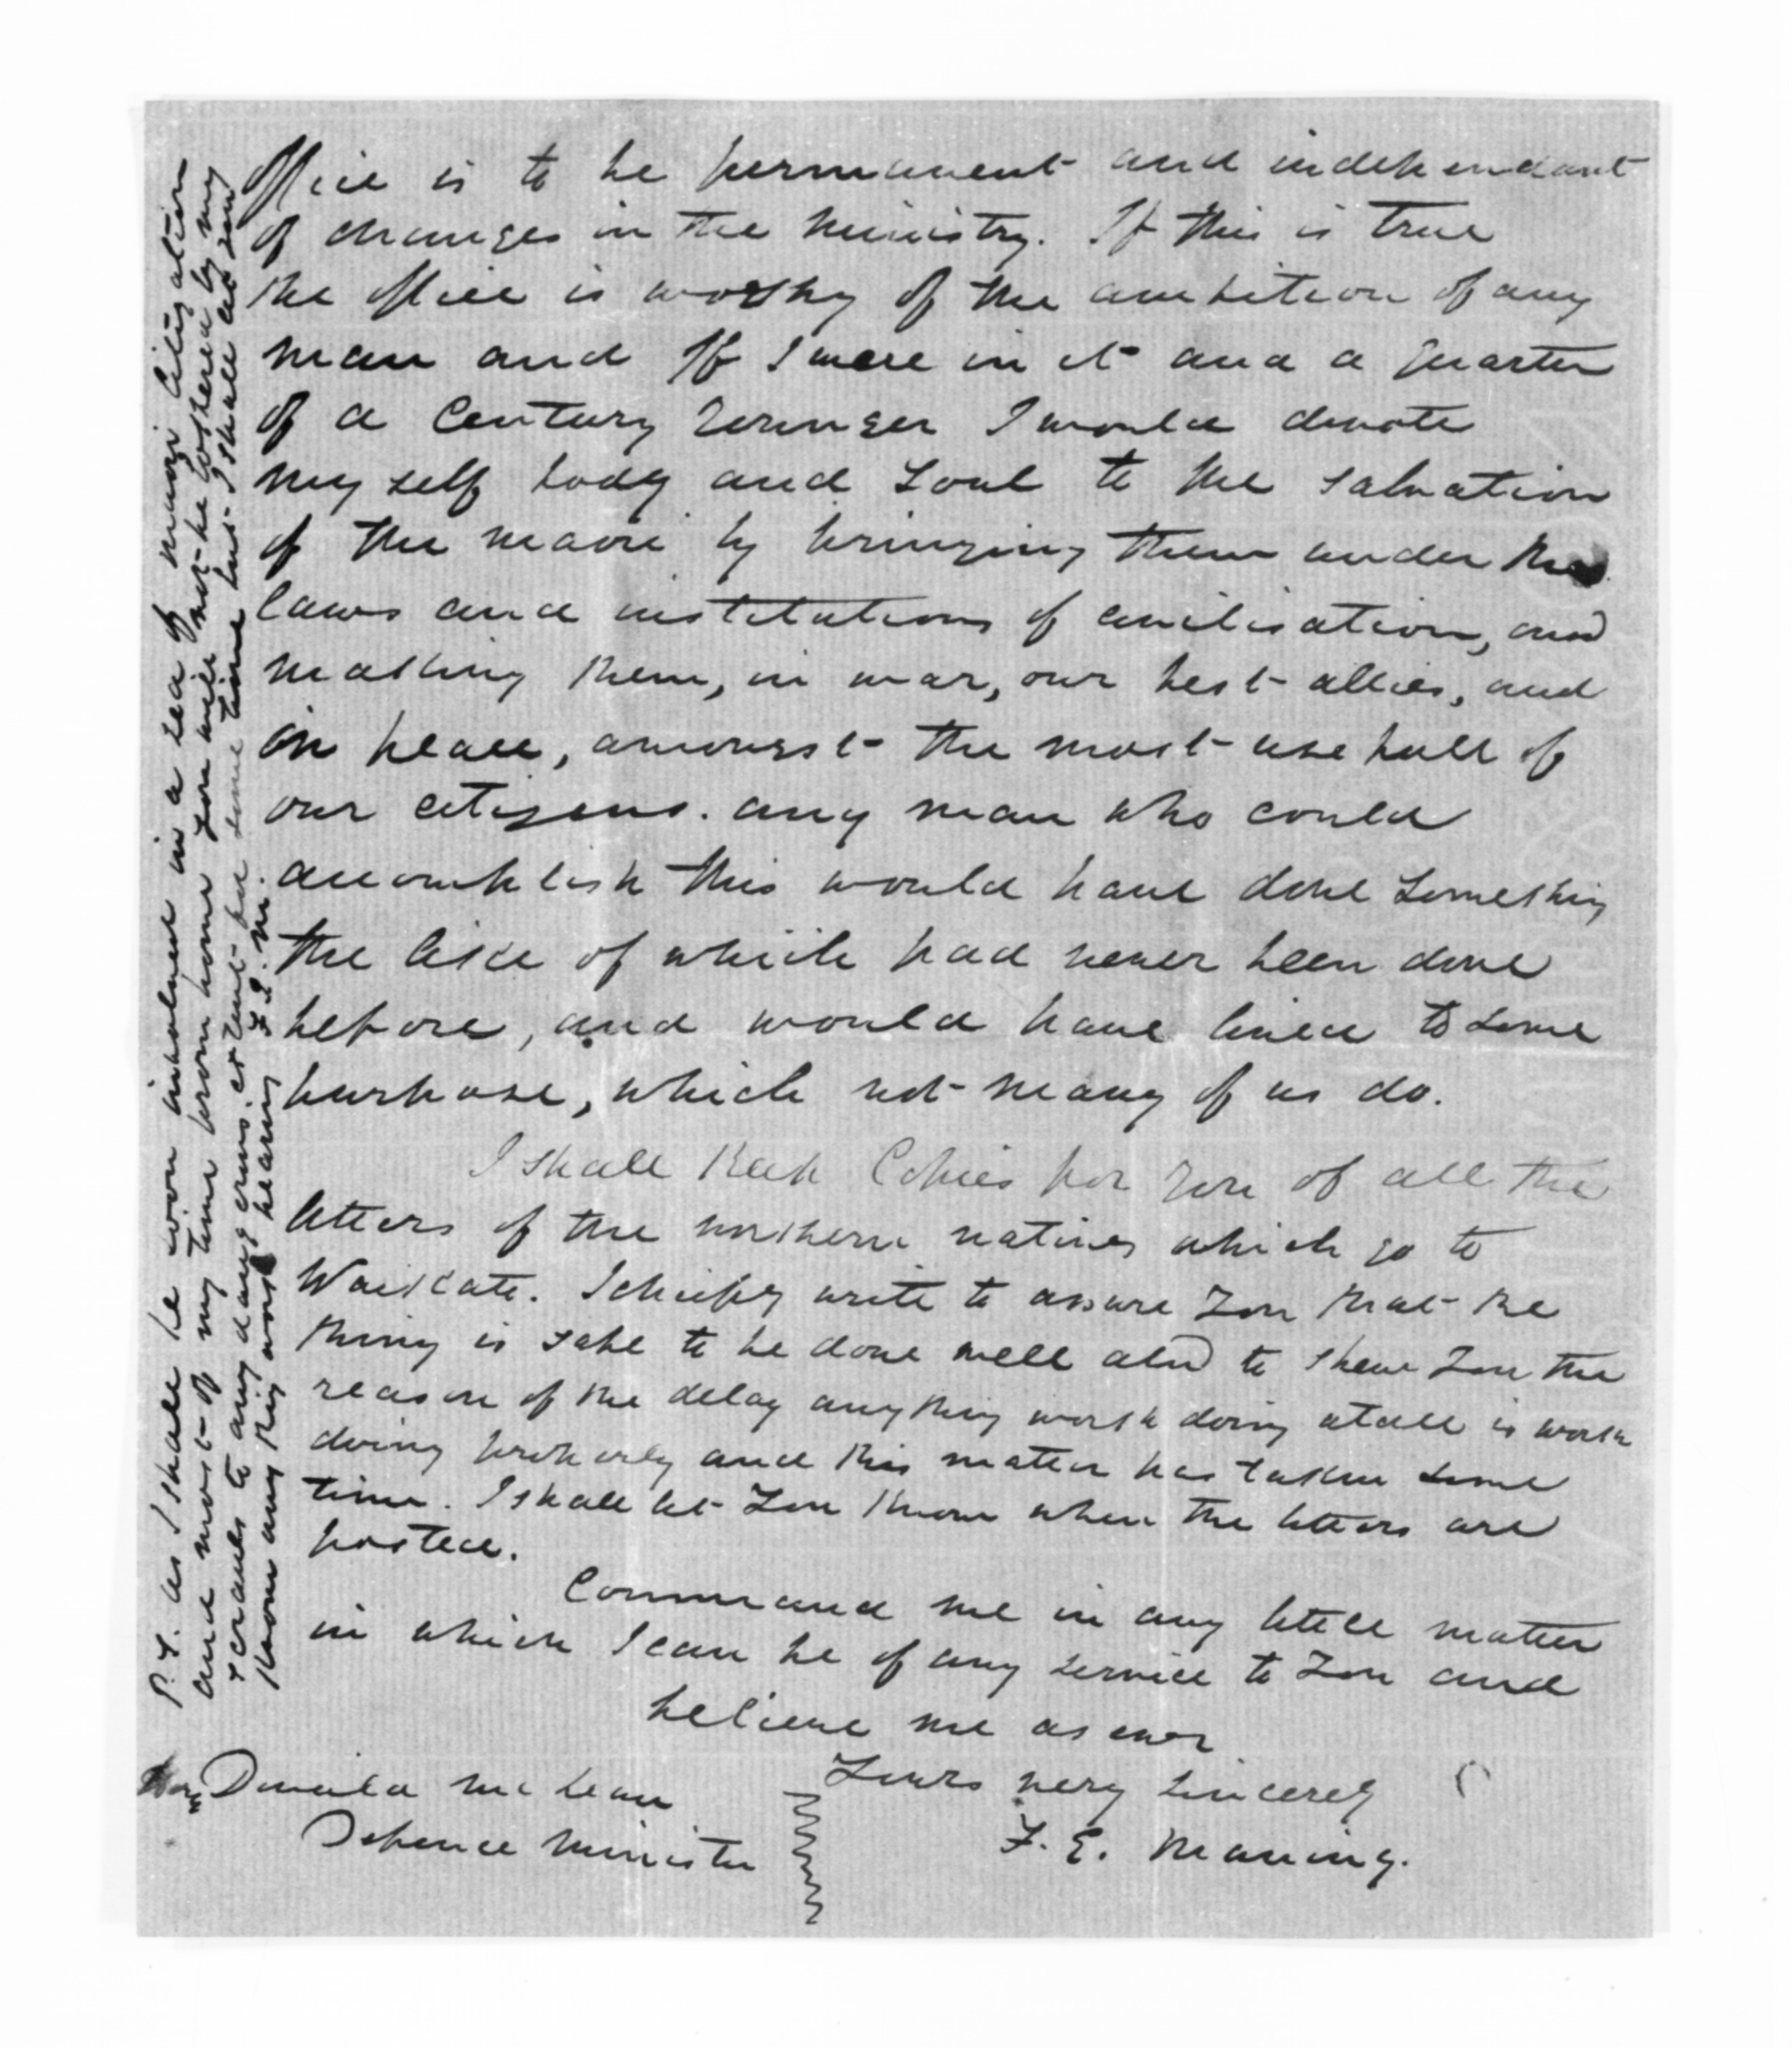 office is to be permanent and independant
of changes in the ministry. If this is true
the office is worthy of the ambition of any
man and If I were in it and a quarter
of a Century Younger I would devote
my self body and soul to the salvation
of the maori by bringing them under the
laws and institutions of civilisation, and
making them, in war, our best allies, and
in peace, amongst the most usefull of
our citizens. any man who could
accomplish this would have done something
the like of which had never been done
before, and would have lived to some
purpose, which not many of us do.
I shall Keep Copies for you of all the
letters of the northern natives which go to
Waikato. I chiefly write to assure You that the
thing is safe to be done well and to shew You the
reason of the delay any thing worth doing atall is worth
doing properly and this matter has taken some
time. I shall let You Know when the letters are
posted.
Command me in any little matter
in which I can be of any service to You and
believe me as ever
Yours very sincerely
F. E. Maning.
Honble Donald McLean
Defence Minister
P.S. as I shall be soon involved in a sea of maori litigation
and most of my time from home you will not be bothered by my
scrawls to any dangerous extent for some time but I shall let you
Know any thing worth hearing F.E.M.